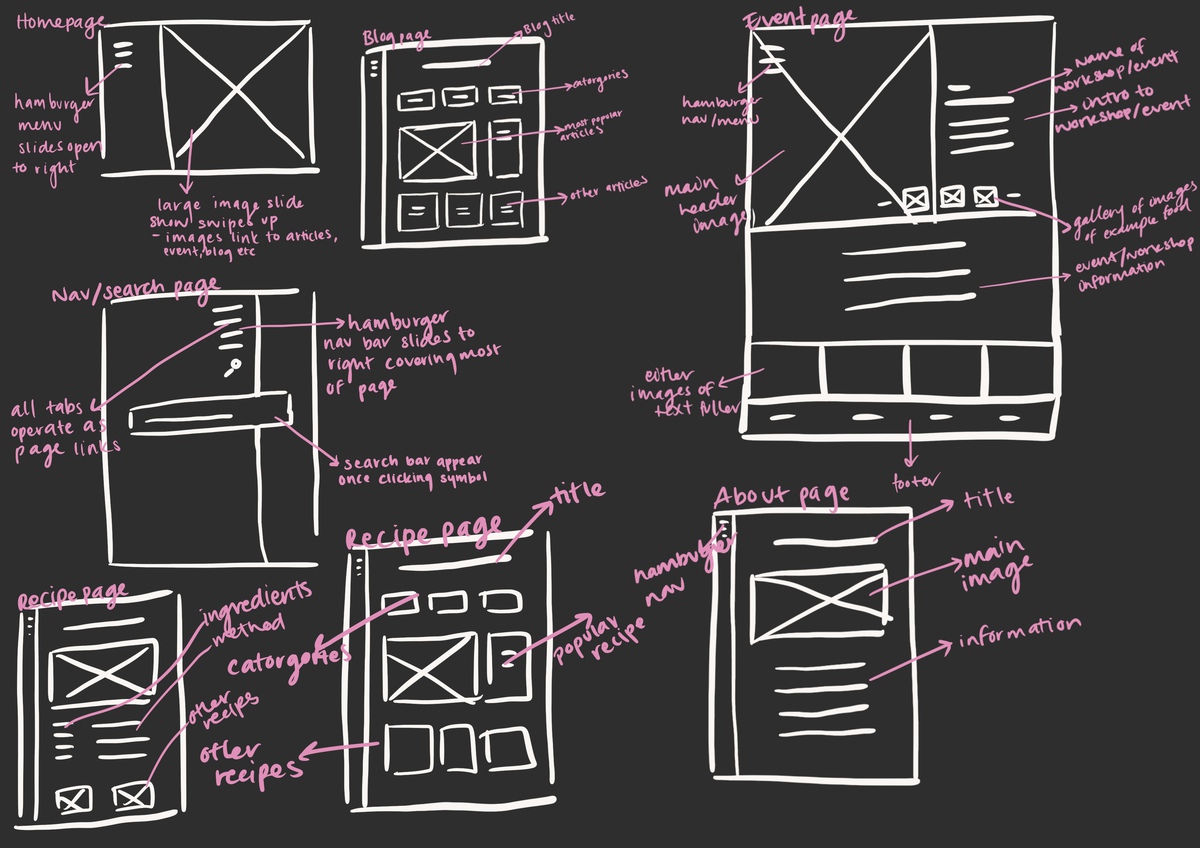 Homepage
hamburger
menu
slides open
to right
large image slide
show swipes up
- images link to articles,
event, blog etc
Blog page
Blog title
catorgories
most popular
articles
other articles
Event page
hamburger
nav/menu
main
header
image
name of
workshop/event
intro to
workshop/event
gallery of images
of example food
event/workshop
information
either
images of
text fuller
footer
Nav/search page
hamburger
nav bar slides to
right covering most
of page
all tabs
operate as
page links
search bar appear
once clicking symbol
Recipe page
ingredients
method
other
recips
Recipe page
title
catorgories
popular
recipe
other
recipes
About page
hamburger
nav
title
main
image
information